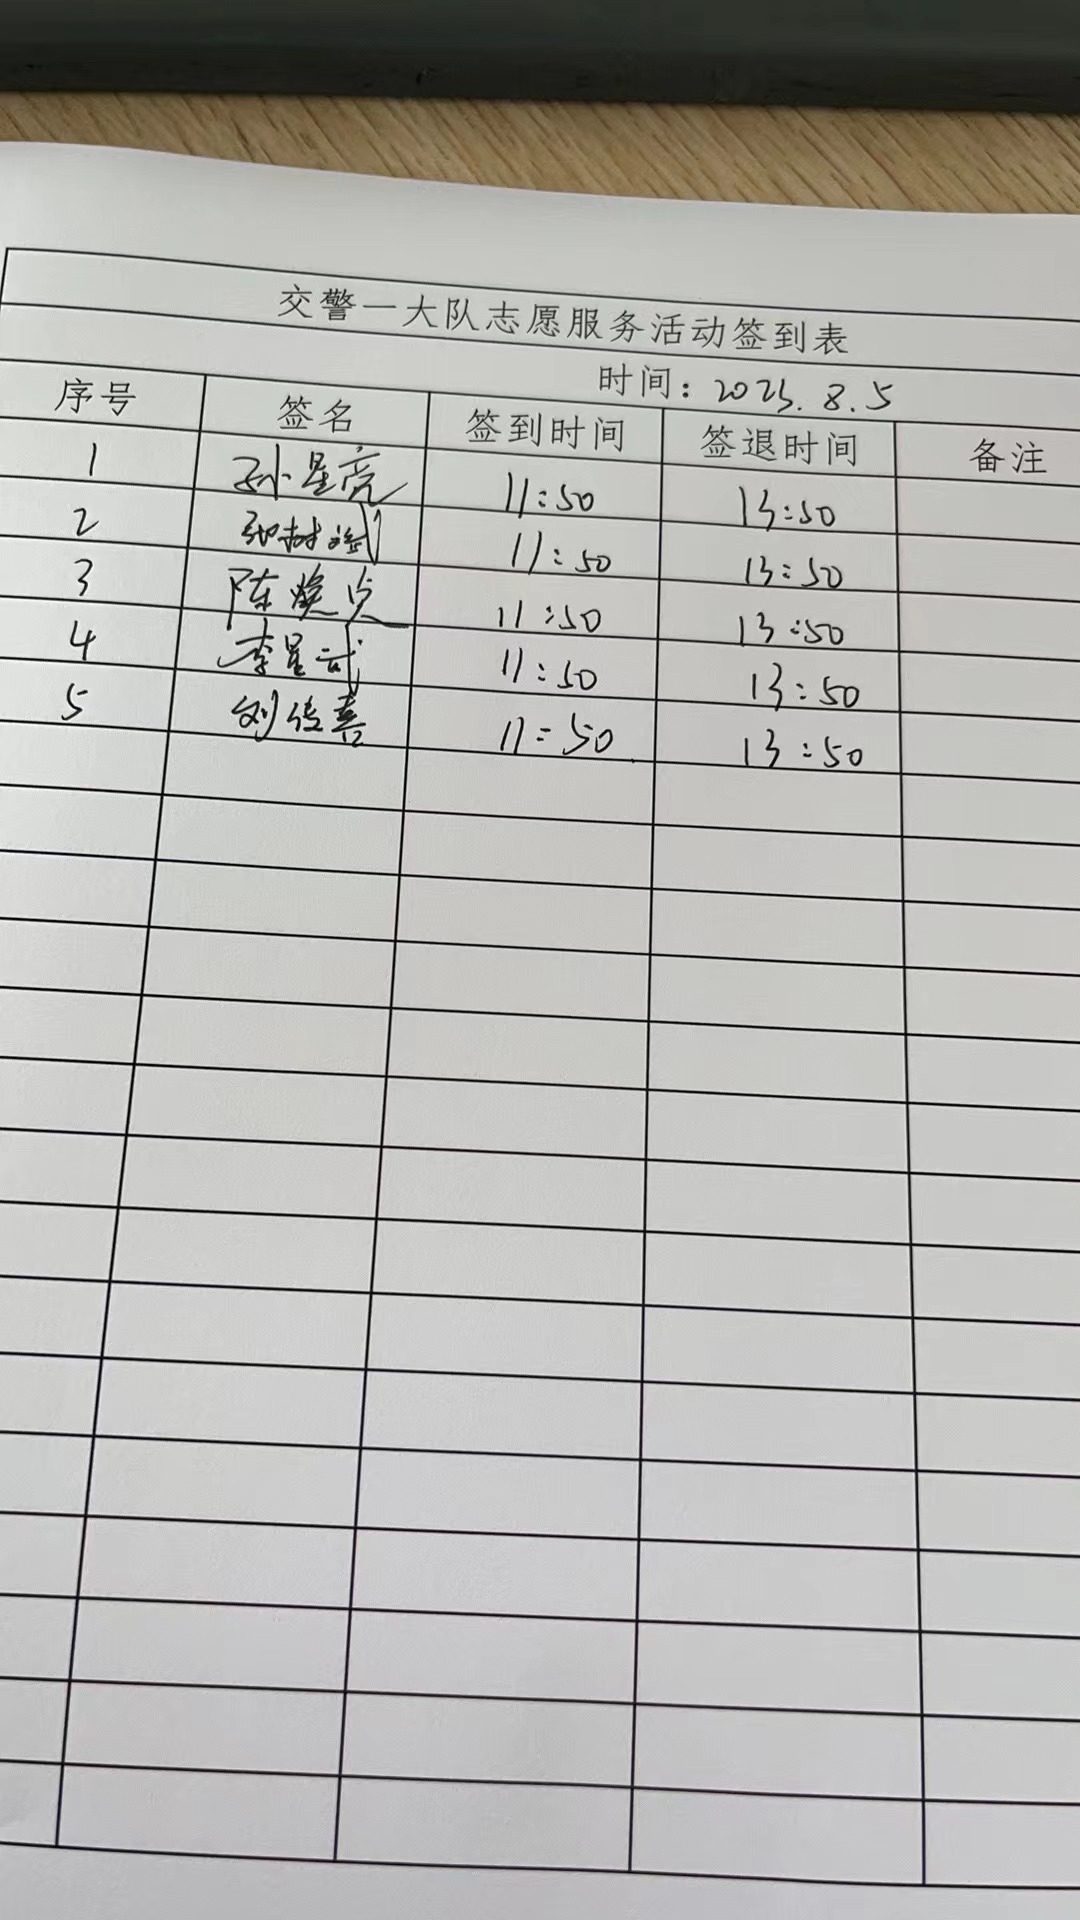 交警一大队志愿服务活动签到表
时间：2025.8.5
序号 签名 签到时间 签退时间 备注
1 孙星亮 11:50 13:50
2 11:50 13:50
3 陈焕贞 11:50 13:50
4 李星武 11:50 13:50
5 刘传喜 11:50 13:50